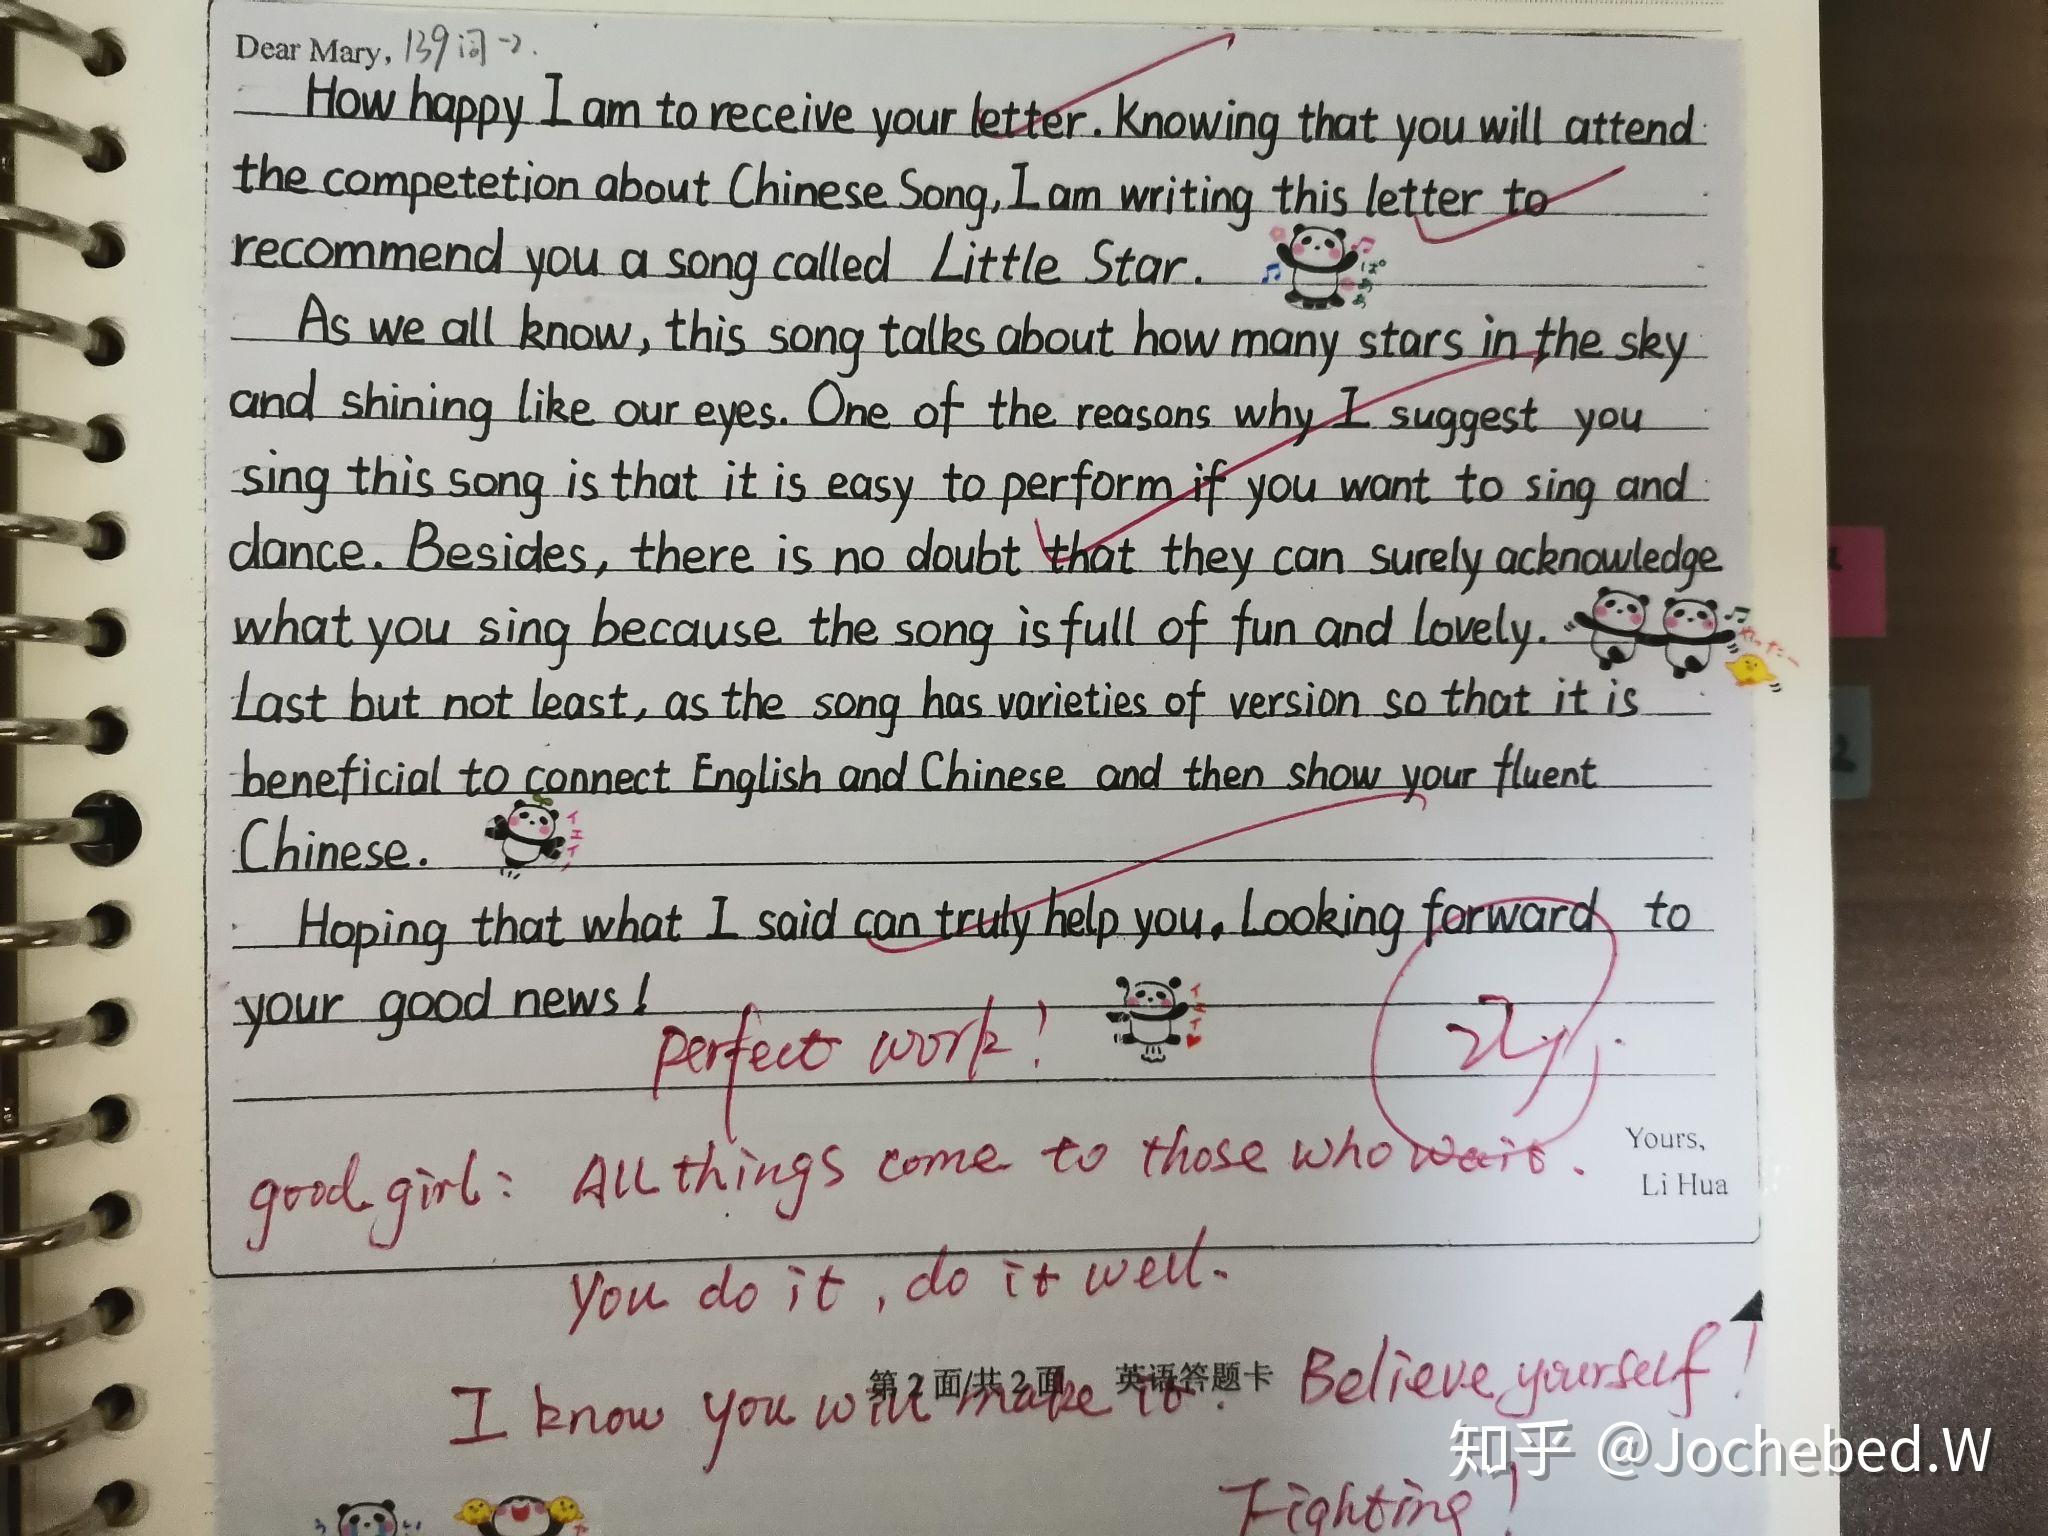 Dear Mary, 139词
How happy I am to receive your letter. Knowing that you will attend
the competetion about Chinese Song, I am writing this letter to
recommend you a song called Little Star.
As we all know, this song talks about how many stars in the sky
and shining like our eyes. One of the reasons why I suggest you
sing this song is that it is easy to perform if you want to sing and
dance. Besides, there is no doubt that they can surely acknowledge
what you sing because the song is full of fun and lovely.
Last but not least, as the song has varieties of version so that it is
beneficial to connect English and Chinese and then show your fluent
Chinese.
Hoping that what I said can truly help you. Looking forward to
your good news!
perfect work!
Yours,
Li Hua
good girl: All things come to those who wait.
You do it, do it well.
第2面/共2面 英语答题卡
I know you will make it. Believe yourself!
Fighting!
知乎 @Jochebed.W